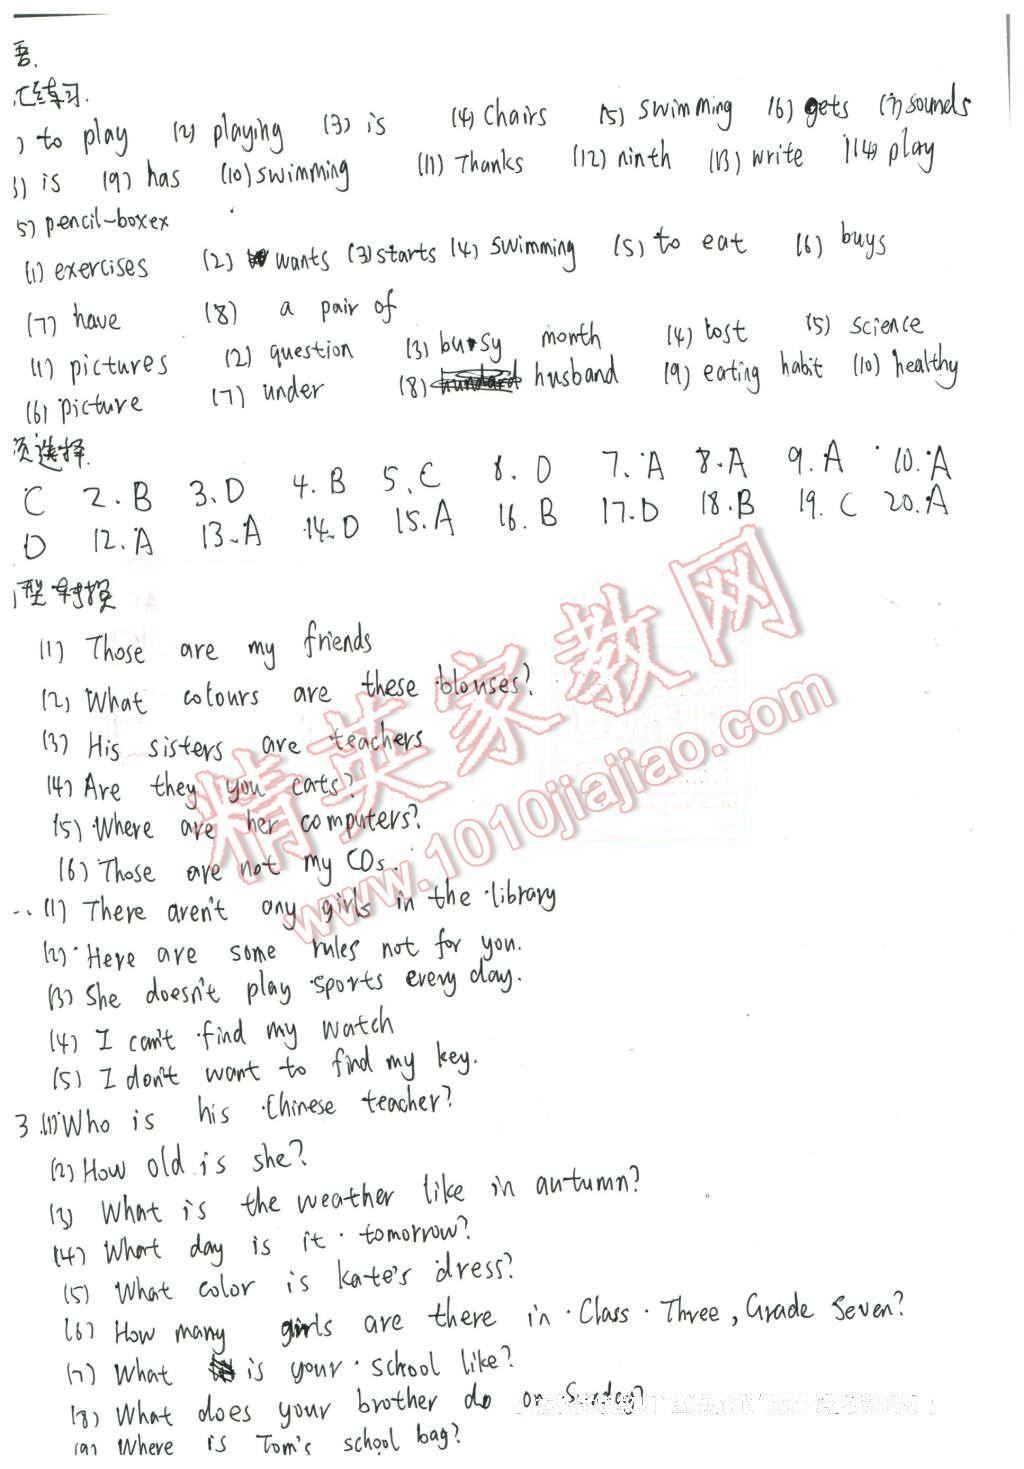 语.
汇练习.
) to play (2) playing (3) is (4) Chairs (5) swimming (6) gets (7) sounds
) is (9) has (10) swimming (11) Thanks (12) ninth (13) write (14) play
5) pencil-boxex
(1) exercises (2) wants (3) starts (4) swimming (5) to eat (6) buys
(7) have (8) a pair of
(1) pictures (2) question (3) busy month (4) lost (5) science
(6) picture (7) under (8) husband (9) eating habit (10) healthy
项选择.
C 2. B 3. D 4. B 5. C 6. D 7. A 8. A 9. A 10. A
D 12. A 13. A 14. D 15. A 16. B 17. D 18. B 19. C 20. A
型转换
(1) Those are my friends
(2) What colours are these blouses?
(3) His sisters are teachers
(4) Are they you cats?
(5) Where are her computers?
(6) Those are not my CDs.
(1) There aren't any girls in the library
(2) Here are some rules not for you.
(3) She doesn't play sports every day.
(4) I can't find my watch
(5) I don't want to find my key.
3.(1) Who is his Chinese teacher?
(2) How old is she?
(3) What is the weather like in autumn?
(4) What day is it tomorrow?
(5) What color is kate's dress?
(6) How many girls are there in Class Three, Grade Seven?
(7) What is your school like?
(8) What does your brother do on Sunday?
(9) Where is Tom's school bag?
精英家教网
www.1010jiajiao.com